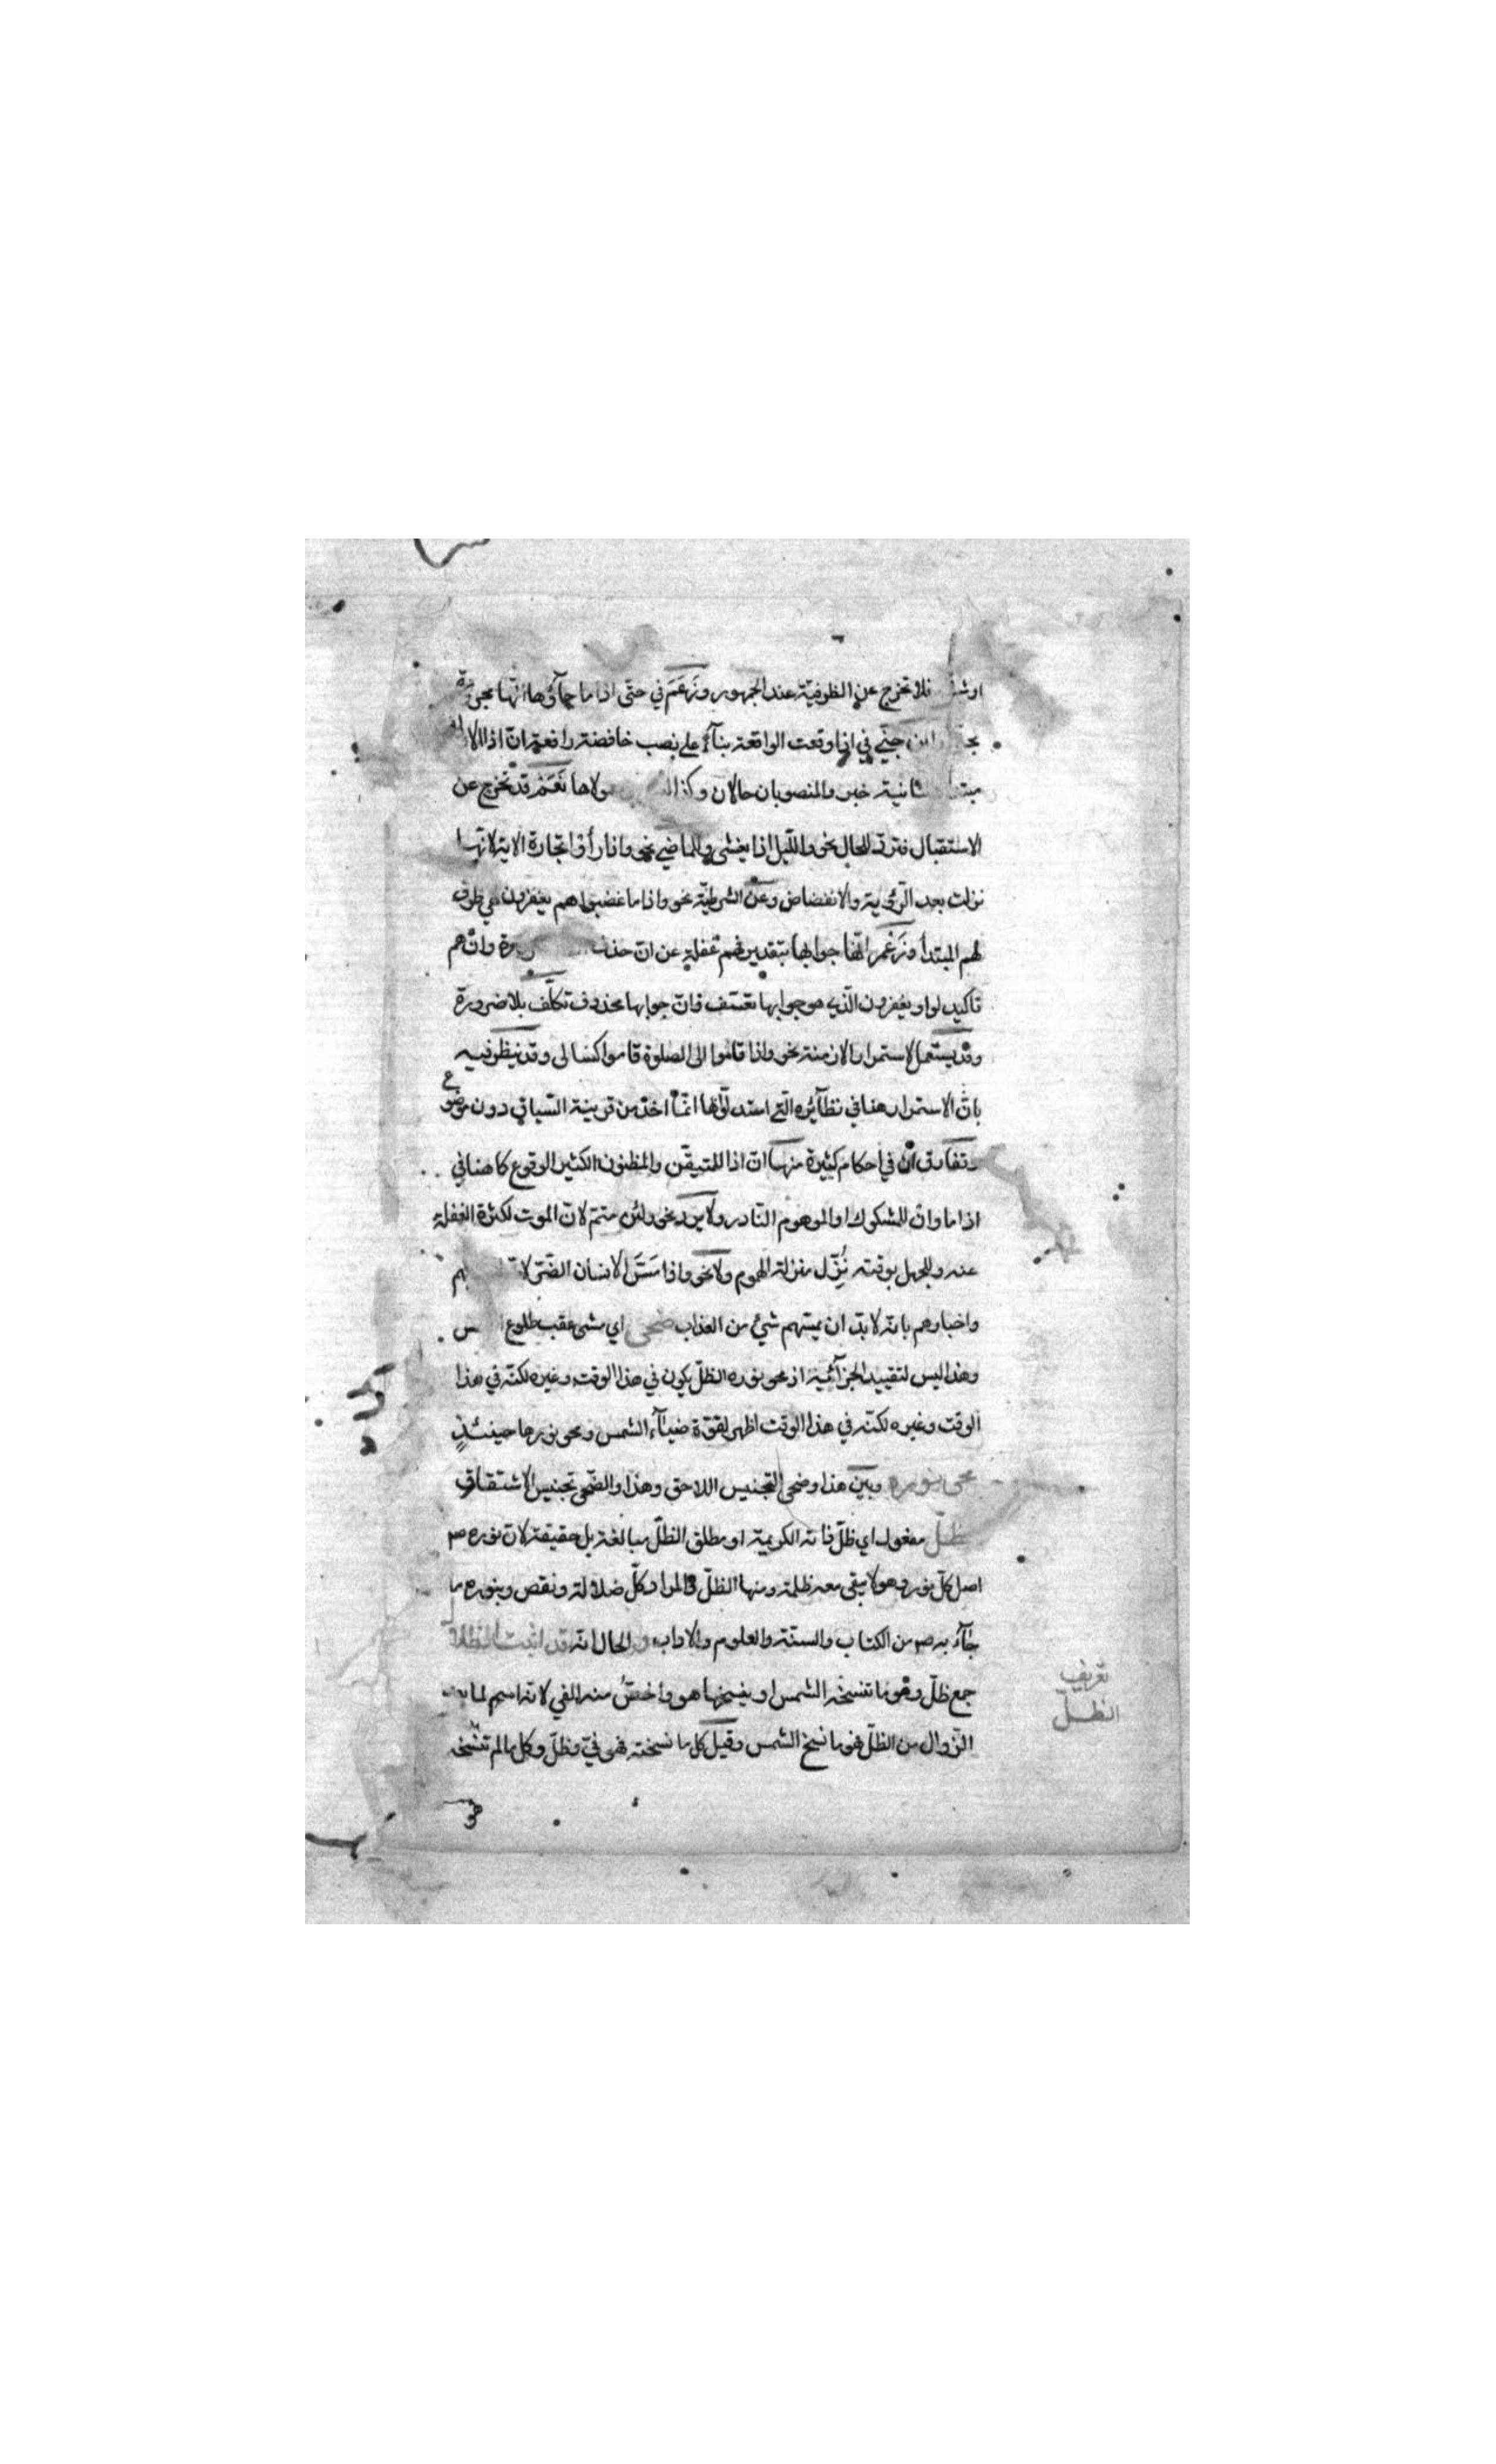 فلا تخرج عن الظرفية عند الجمهور وزعم في حتى اذا ما جاؤها انها مجرورة
ابن جنّي في اذا وقعت الواقعة بناء على نصب خافضة رافعة ان اذا الاولى
مبتدأ والثانية خبر والمنصوبان حالان وكذا ليس ومعمولاها نَعَمْ قد تخرج عن
الاستقبال فترد للحال نحو والليل اذا يغشى وللماضي نحو واذا رأوا تجارة الاية لانها
نزلت بعد الرؤية والانفضاض وعن الشرطية نحو واذا ما غضبوا هم يغفرون هي ظرف
لهم المبتدأ وزعم انها جوابها بتقدير فهم غفلة عن ان حذف ضرورة وان هم
تأكيد لواو يغفرون الذي هو جوابها تعسف فان جوابها محذوف تكلّف بلا ضرورة
وقد يستعمل لاستمرار الازمنة نحو واذا قاموا الى الصلوة قاموا كسالى وقد ينظر فيه
بان الاستمرار هنا في نظائره التي استدلوا بها انما اخذ من قرينة السياق دون موضوع
وتفارق ان في احكام كثيرة منها ان اذا للمتيقن والمظنون الكثير الوقوع كما هنا في
اذا ما وان للمشكوك او الموهوم النادر ولا يرد نحو ولئن متم لان الموت لكثرة الغفلة
عنه وللجهل بوقته نُزّل منزلة الموهوم ولا نحو واذا مَسَّ الانسان الضّر لا
واخبارهم بانه لا بدّ ان يمسّهم شيئ من العذاب ضحى اي مشى عقب طلوع الشمس
وهذا ليس لتقييد الجزائية اذ محو نوره الظلّ يكون في هذا الوقت وغيره لكنّه في هذا
الوقت وغيره لكنّه في هذا الوقت اظهر لقوّة ضياء الشمس ومحو نورها حينئذٍ
محى نوره وبين هذا وضحى التجنيس اللاحق وهذا والضحى تجنيس الاشتقاق
الظلّ مفعول اي ظلّ ذاته الكريمة او مطلق الظلّ مبالغة بل حقيقة لان نوره صم
اصل كلّ نور وهو لا يبقى معه ظلمة ومنها الظلّ والمراد كلّ ضلالة ونقص وبنوره ما
جاء به صم من الكتاب والسنّة والعلوم والآداب و الحال انه قد اثبت الظلال
جمع ظلّ وهو ما تنسخه الشمس او ينسخها هو واخصّ منه الفي لانه اسم لما بعد
الزوال من الظلّ فهو ما نسخ الشمس وقيل كل ما نسخته فهو فيّ وظلّ وكل ما لم تنسخه
تعريف
الظلّ